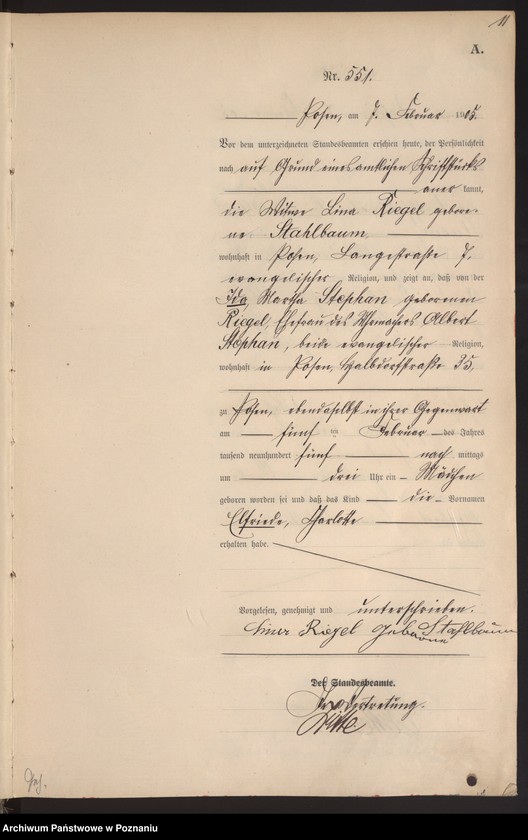 11
A.
Nr. 551.
Posen, am 7. Februar 1905.
Vor dem unterzeichneten Standesbeamten erschien heute, der Persönlichkeit
nach auf Grund eines amtlichen Schriftstücks
anerkannt,
die Witwe Lina Riegel gebore-
ne Stahlbaum,
wohnhaft in Posen, Langestraße 7,
evangelischer Religion, und zeigt an, daß von der
Ida, Martha Stephan geborenen
Riegel, Ehefrau des Uhrmachers Albert
Stephan, beide evangelischer Religion,
wohnhaft in Posen, Halbdorfstraße 35,
zu Posen, ebendaselbst in ihrer Gegenwart
am fünften Februar des Jahres
tausend neunhundert fünf nach mittags
um drei Uhr ein Mädchen
geboren worden sei und daß das Kind die Vornamen
Elfriede, Charlotte
erhalten habe.
Vorgelesen, genehmigt und unterschrieben.
Lina Riegel geborne Stahlbaum
Der Standesbeamte.
In Vertretung.
Archiwum Państwowe w Poznaniu